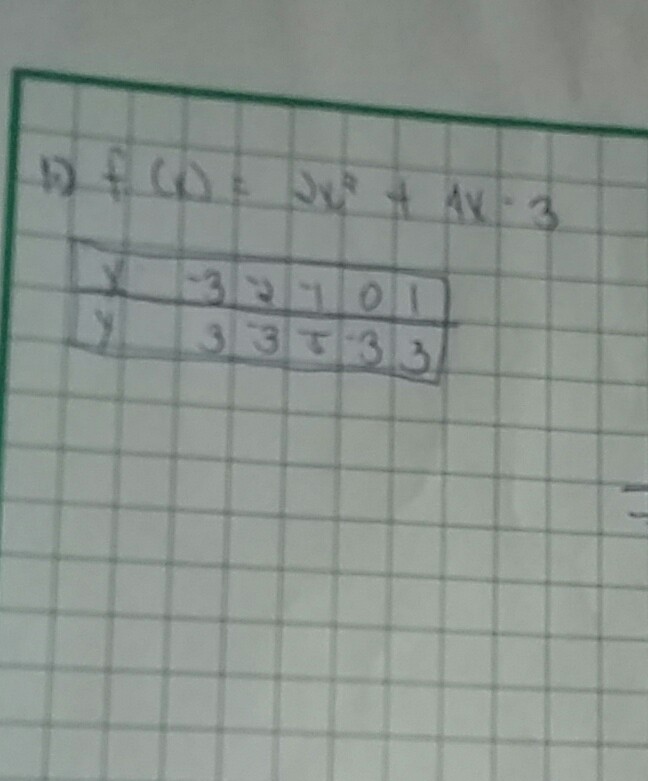 b) f(x) = 2x² + 4x - 3
x -3 -2 -1 0 1
y 3 -3 -5 -3 3